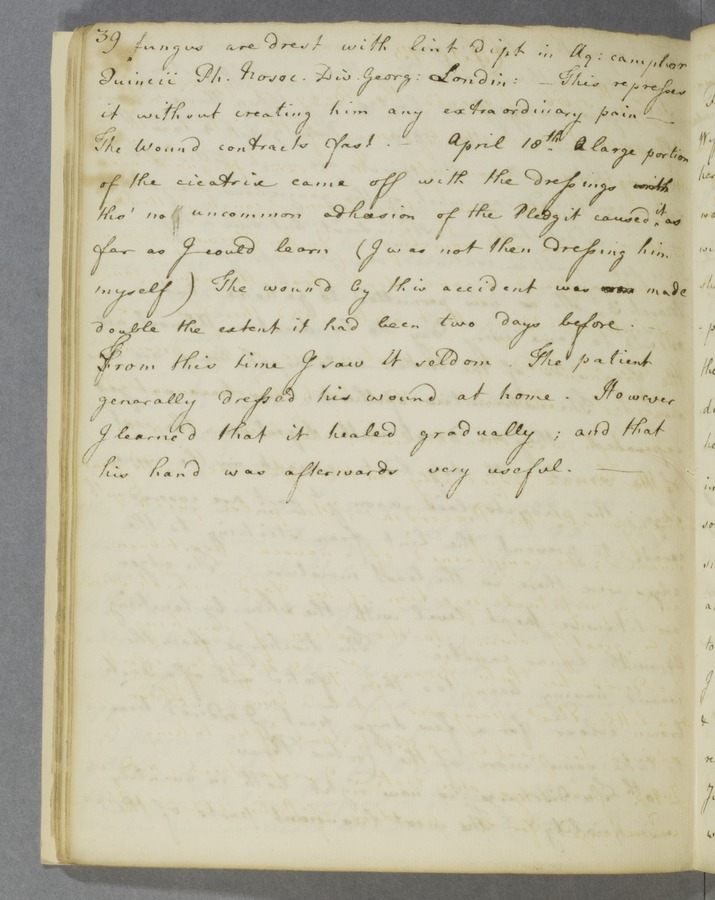 39 fungus are drest with lint dipt in Aq: camphor
Quincii Ph. Nosoc. Div. Georg: Londin: — This represses
it without creating him any extraordinary pain —
The wound contracts fast. — April 18th A large portion
of the cicatrix came off with the dressings
tho' no uncommon adhæsion of the Pledgit caused it as
far as I could learn (I was not then dressing him
myself) The wound by this accident was made
double the extent it had been two days before. —
From this time I saw it seldom. The patient
generally dressed his wound at home. However
I learned that it healed gradually; and that
his hand was afterwards very useful. —